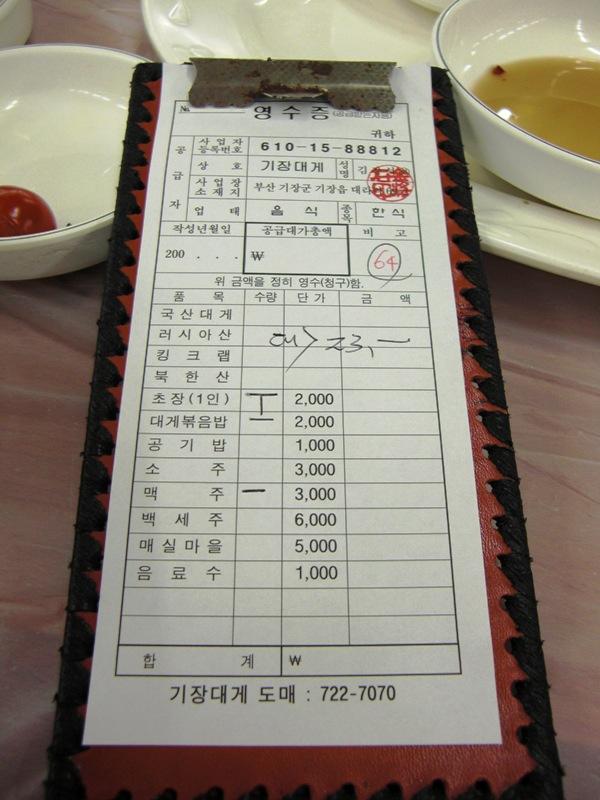 №
영수증 (공급받는자용)
귀하
공급자
사업자등록번호 610-15-88812
상호 기장대게 성명 김
사업장소재지 부산 기장군 기장읍 대라
업태 음식 종목 한식
작성년월일 공급대가총액 비고
200 . . . ₩ 64
위 금액을 정히 영수(청구)함.
품목 수량 단가 금액
국산대게
러시아산
킹크랩
북한산
초장(1인) 2,000
대게볶음밥 2,000
공기밥 1,000
소주 3,000
맥주 一 3,000
백세주 6,000
매실마을 5,000
음료수 1,000
합계 ₩
기장대게 도매 : 722-7070